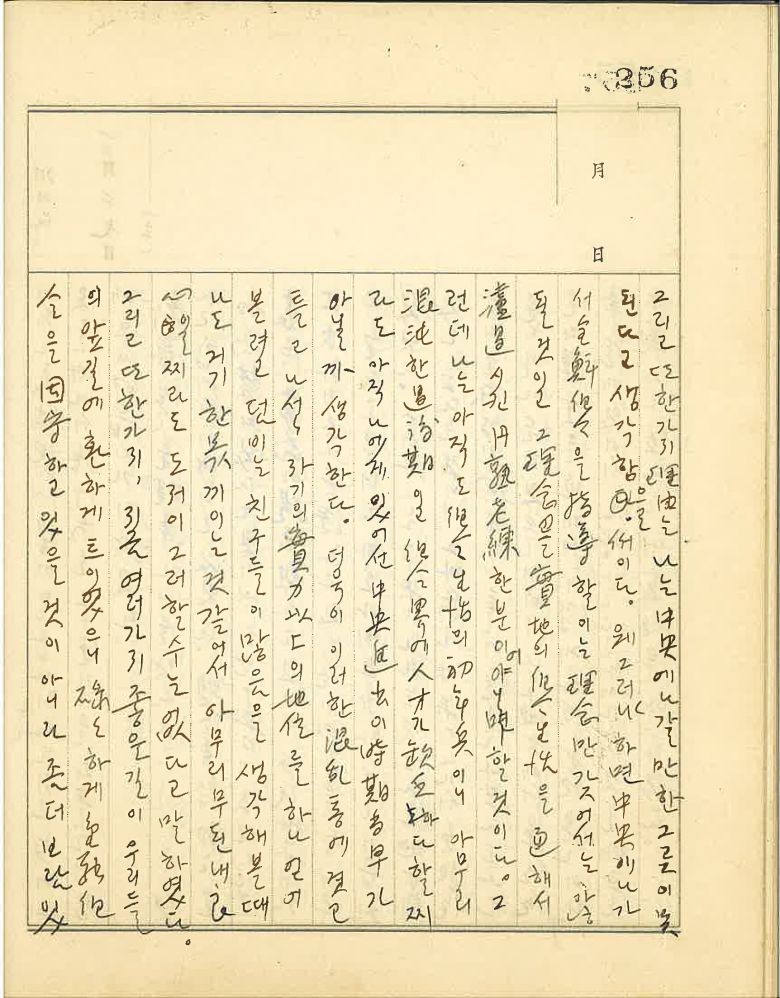 356
月
日
그리고 또 한가지 理由는 나는 中央에 나갈만한 그릇이 못
된다고 생각함을 써이다. 웨 그러냐 하면 中央에 나가
서 全鮮 을 指導할이는 理念만 가저어서는 안
될 것이고 그 理念을 實地의 生活을 通해서
濾過시킨 円熟老練한 분이어야 할 것이다. 그
런데 나는 아직도 生活의 初年兵이니 아무리
混沌한 過渡期 에 人才가 欠乏하다 할찌
라도 아직 나에게 있어선 中央進出이 時期尙早가
아닐까 생각한다. 더욱이 이러한 混乱통에 젓고
틀고 나서서 자기의 實力以上의 地位를 하나 얻어
볼려고 덤비는 친구들이 많음을 생각해볼 때
나도 거기 한몫 끼이는 것 같어서 아무리 무된 내 良
心일찌라도 도저이 그러할 수는 없다고 말하였다.
그리고 또 한가지, 지금 여러가지 좋은 길이 우리들
의 앞길에 환하게 트이었으니 하게
을 固守하고 있을 것이 아니라 좀더 보람있